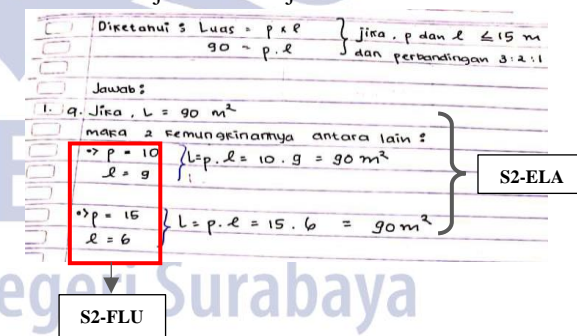 Diketahui : Luas = p x l } jika . p dan l ≤ 15 m
90 = p . l } dan perbandingan 3 : 2 : 1
Jawab :
1. a. Jika , L = 90 m²
maka 2 kemungkinannya antara lain :
•> p = 10 } L = p . l = 10 . 9 = 90 m²
l = 9
•> p = 15 } L = p . l = 15 . 6 = 90 m²
l = 6
S2-ELA
S2-FLU
egeri Surabaya